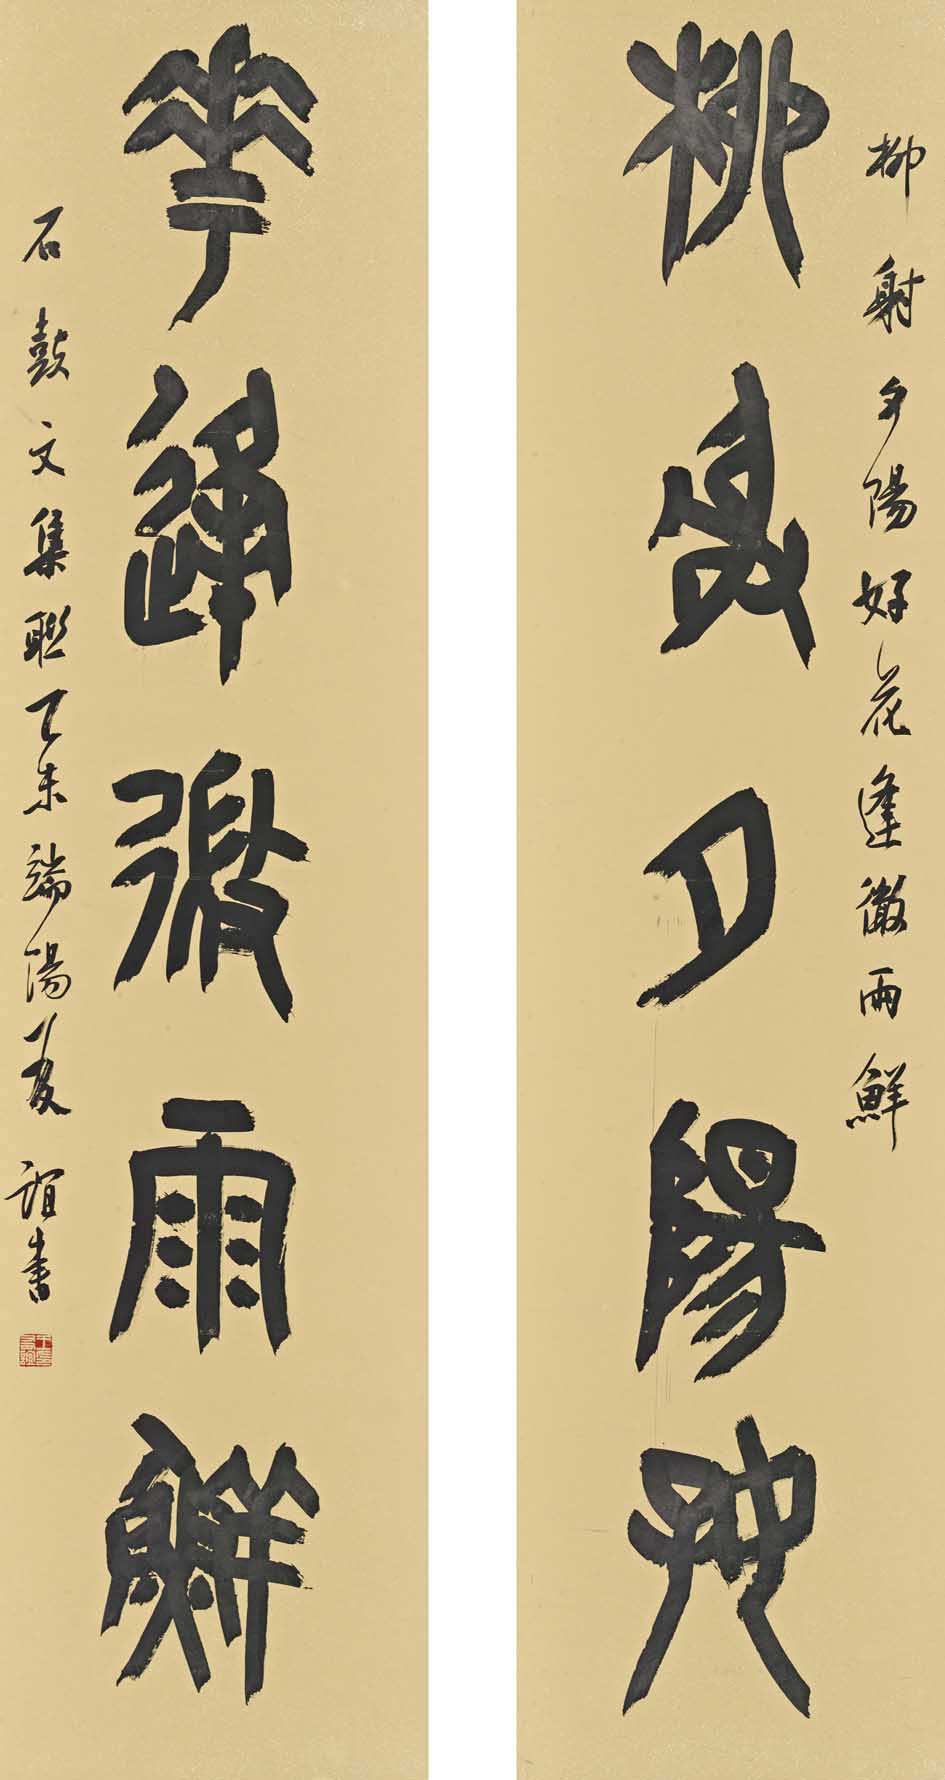 柳射夕陽好花逢微雨鮮
柳射夕陽好
華逢微雨鮮
石鼓文集聯乙未端陽夏誼書